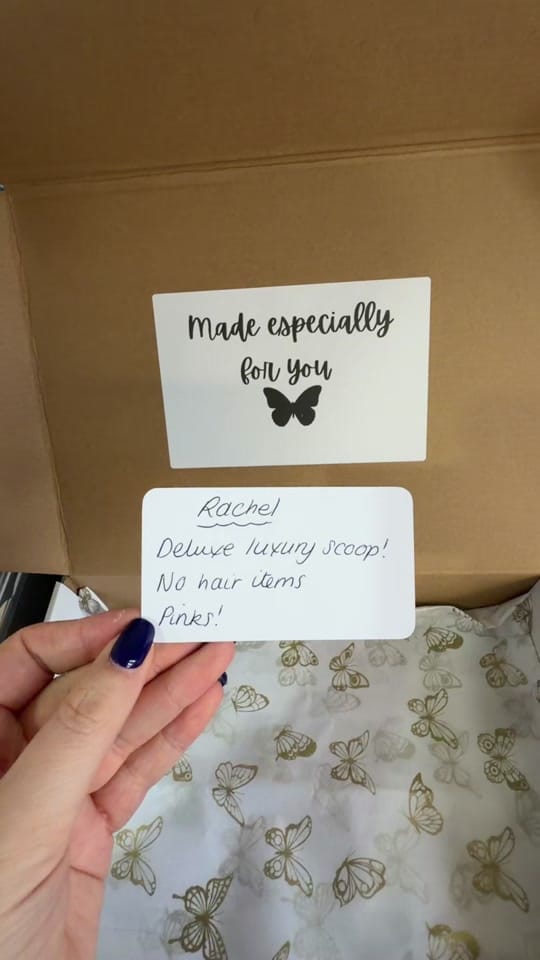 Made especially
for you
Rachel
Deluxe luxury scoop!
No hair items
Pinks!